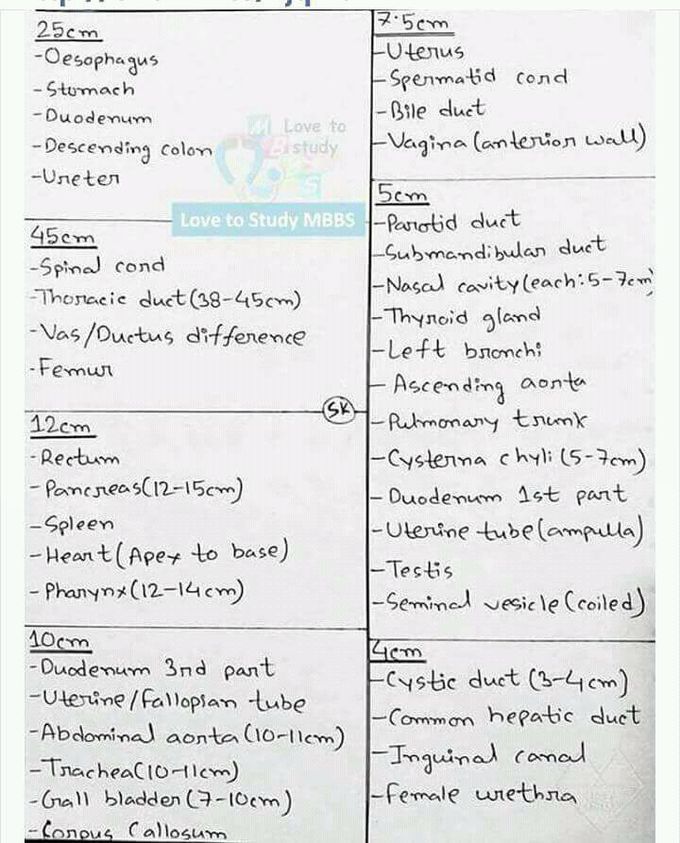 25cm
-Oesophagus
-Stomach
-Duodenum
-Descending colon
-Ureter
Love to
study
M
B
S
Love to Study MBBS
45cm
-Spinal cond
-Thoracic duct (38-45cm)
-Vas/Ductus difference
-Femur
SK
12cm
-Rectum
-Pancreas(12-15cm)
-Spleen
-Heart (Apex to base)
-Pharynx(12-14cm)
10cm
-Duodenum 3nd part
-Uterine/Fallopian tube
-Abdominal aorta (10-11cm)
-Trachea(10-11cm)
-Gall bladder (7-10cm)
-Corpus Callosum
7.5cm
-Uterus
-Spermatid cond
-Bile duct
-Vagina (anterior wall)
5cm
-Parotid duct
-Submandibular duct
-Nasal cavity (each:5-7cm)
-Thyroid gland
-Left bronchi
-Ascending aorta
-Pulmonary trunk
-Cysterna chyli (5-7cm)
-Duodenum 1st part
-Uterine tube (ampulla)
-Testis
-Seminal vesicle (coiled)
4cm
-Cystic duct (3-4cm)
-Common hepatic duct
-Inguinal canal
-Female urethra